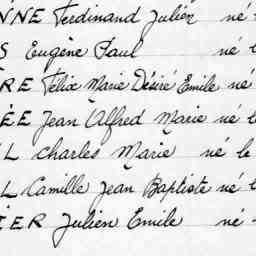 NNE Ferdinand Julien né
S Eugène Paul né
RE Félix Marie Désiré Emile né
ÉE Jean Alfred Marie né l
L Charles Marie né le
L Camille Jean Baptiste né l
IER Julien Emile né